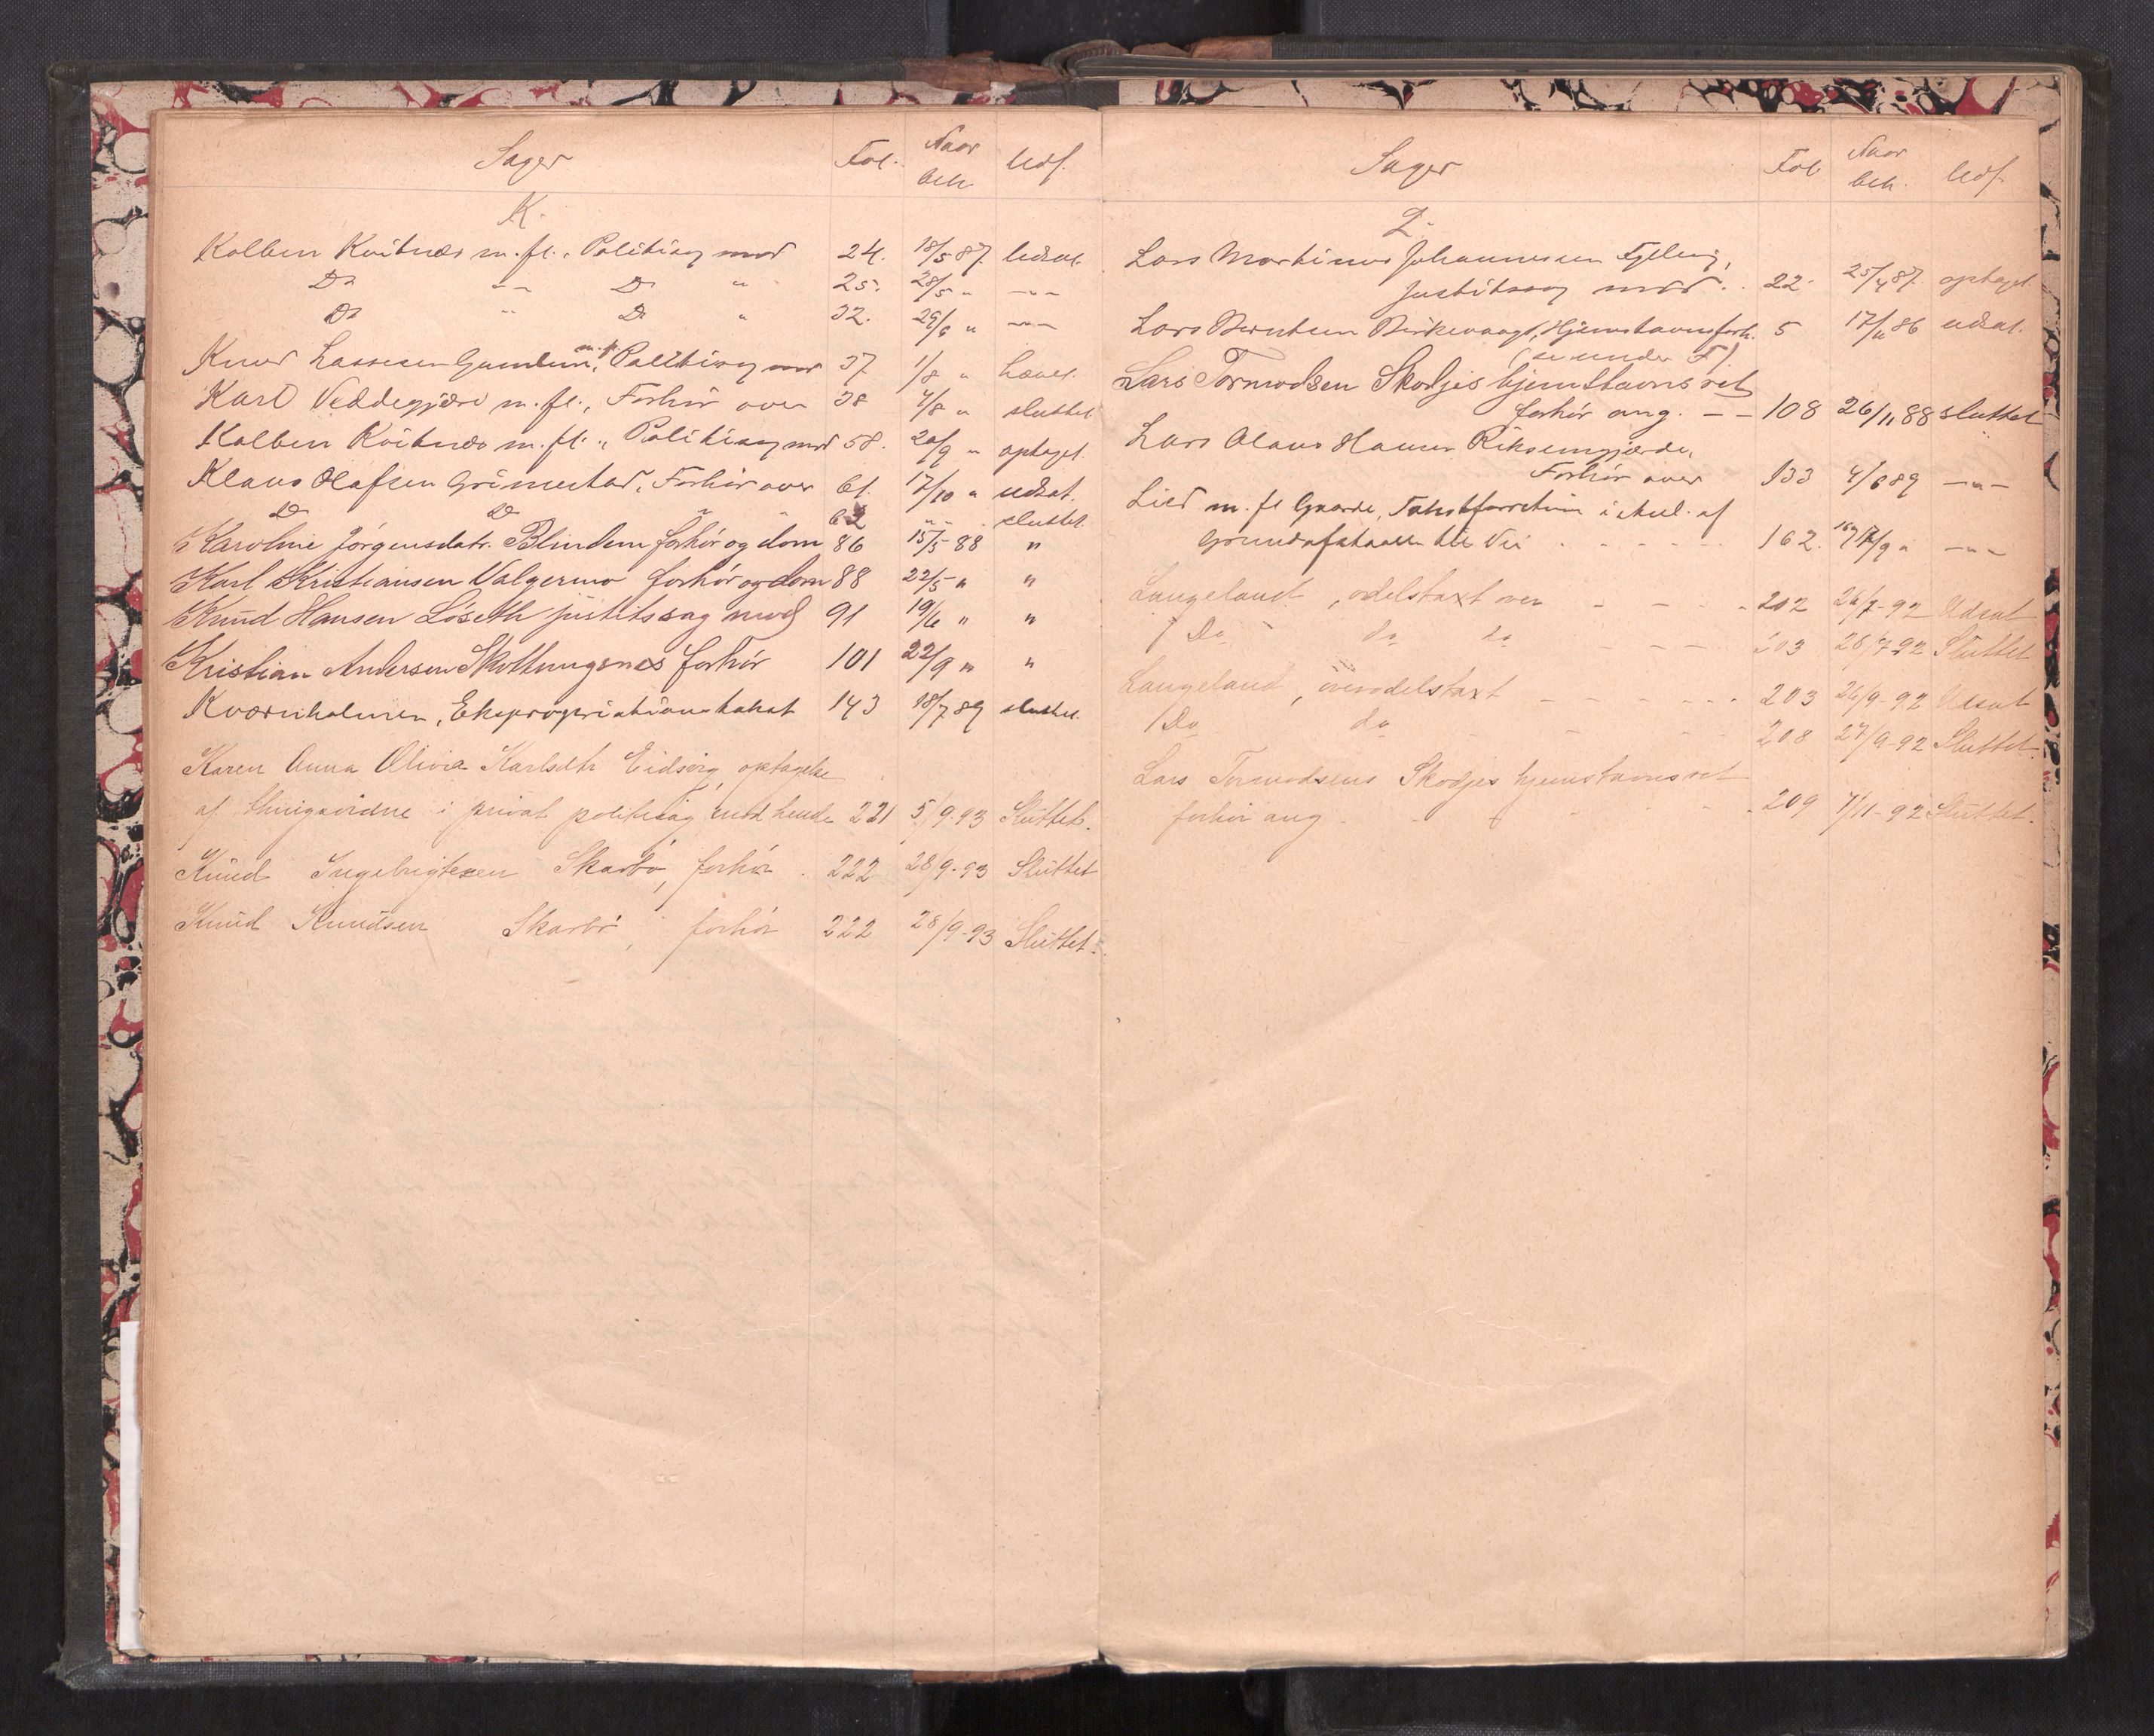 Sager Fol. Naar beh. Udf.
K.
Kolben Kvitnæs m. fl., Politisag mod 24. 18/5 87. Udsat.
Do " " Do " 25. 28/5 " — " —
Do " Do " 32. 29/6 " — " —
Knud Lassesen m. fl., Politisag mod 37 1/8 " hævet.
Karl Veddegjære m. fl., Forhør over 38 4/8 " sluttet
Kolben Kvitnæs m. fl., Politisag mod 58. 20/9 " optaget.
Klaus Olafsen Grimestad, Forhør over 61. 17/10 " udsat.
Do Do " " 62 " " sluttet.
Karoline Jörgensdatr. Blindem forhör og dom 86 15/5 88 "
Karl Kristiansen Valgermo forhör og dom 88 22/5 " "
Knud Hansen Löseth justitssag mod 91 19/6 " "
Kristian Andersen Skottungsnes forhör 101 22/9 " "
Kværnholmen, Ekspropriationstakst 143 18/7 89 sluttet.
Karen Anna Olivia Karlsdtr Eidsvig, optagelse
af thingsvidne i privat politisag mod hende 221 5/9-93 Sluttet.
Knud Ingebrigtsen Skarbö, forhör 222 28/9-93 Sluttet
Knud Knudsen Skarbö, forhör 222 28/9-93 Sluttet.
Sager Fol Naar beh. Udf.
L.
Lars Martinus Johannesen
Justitssag mod. 22. 25/4 87. optaget.
Lars Berntsen Birkevaagt, Hjemstavnsforh. 5 17/11 86 udsat.
(se under F)
Lars Tormodsen Skodjes hjemstavnsret
forhör ang. — — 108 26/11 88 sluttet
Lars Olaus Hansen
Forhør over 133 4/6 89 — " —
Lied m. fl Gaarde, Takstforretn i anl. af
Grundafstaaelse til Vei 162. 16 og 17/9 " — " —
Langeland, odelstaxt over - - - 202 26/7-92 Udsat
Do do do - - - 203 28/7 92 Sluttet
Langeland, overodelstaxt - - - 203 26/9-92 Udsat
Do do 208 27/9-92 Sluttet
Lars Tormodsens Skodjes hjemstavnsret
forhör ang 209 7/11-92 Sluttet.